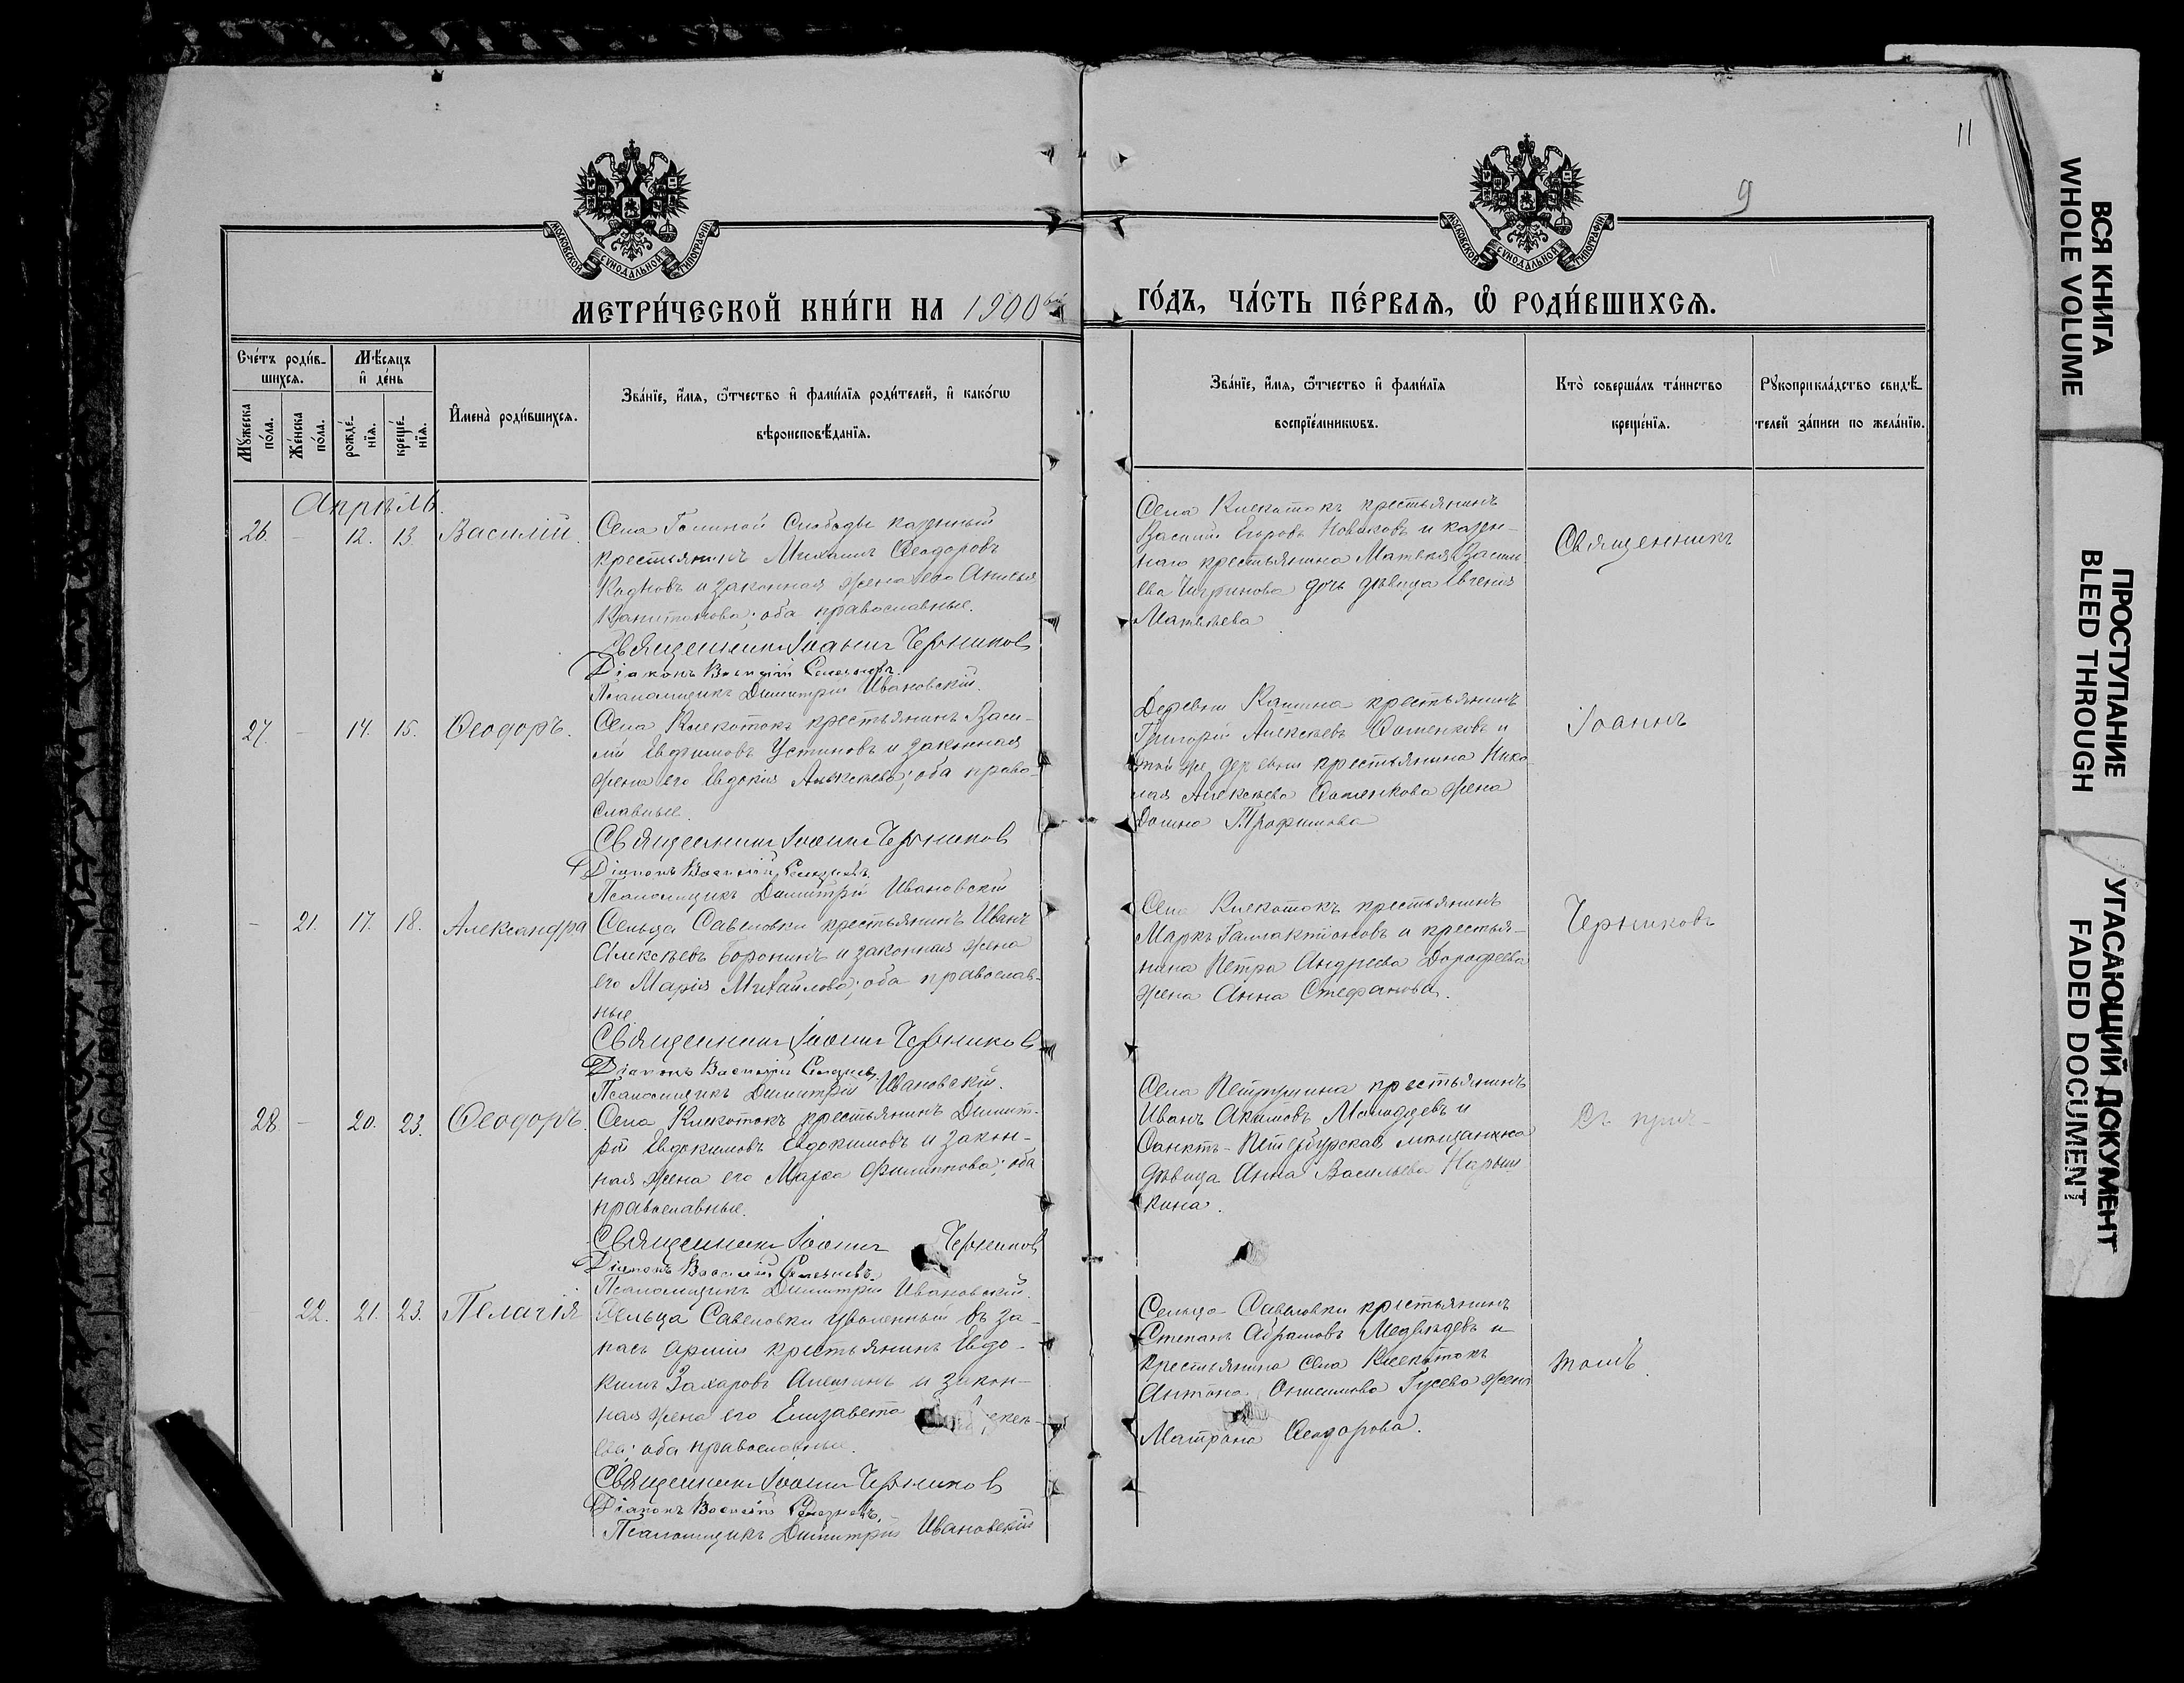 11
9
МОСКОВСКОЙ СѴНОДАЛЬНОЙ ТИПОГРАФІИ
МОСКОВСКОЙ СѴНОДАЛЬНОЙ ТИПОГРАФІИ
МЕТРИ́ЧЕСКОЙ КНИ́ГИ НА 1900ый
ГО́ДЪ, ЧА́СТЬ ПЕ́РВАѦ, Ѡ҆ РОДИ́ВШИХСѦ.
Сче́тъ роди́в-
шихсѧ.
Мѣ́сѧцъ
и҆ де́нь
Мꙋ́жеска
по́ла.
Же́нска
по́ла.
рожде́-
нїѧ.
креще́-
нїѧ.
И҆мена̀ роди́вшихсѧ.
Зва́нїе, и҆́мѧ, ѻ҆́тчество и҆ фами́лїѧ роди́телей, и҆ како́гѡ
вѣроисповѣ́данїѧ.
Зва́нїе, и҆́мѧ, ѻ҆́тчество и҆ фами́лїѧ
воспрїе́мникѡвъ.
Кто̀ соверша́лъ та́инство
креще́нїѧ.
Рꙋкоприкла́дство свидѣ́-
телей за́писи по жела́нїю.
Апрѣль.
26. - 12. 13. Василій.
Села Слободы казенный
крестьянинъ Михаилъ Ѳеодоровъ
и законная жена его
оба православные.
Священникъ Іоаннъ Черников
Діаконъ Василій
Псаломщикъ Димитрій Ивановскій.
Села Клекотокъ крестьянинъ
Василій Егоровъ Новиковъ и казен-
наго крестьянина Матвѣя Василь
ева дочь дѣвица Евгенія
Матвѣева
Священникъ
27. - 14. 15. Ѳеодоръ.
Села Клекотокъ крестьянинъ Васи-
лій Евфимовъ Устиновъ и законная
жена его Евдокія Алексѣева; оба право-
славные.
Священникъ Іоаннъ Черников
Діаконъ Василій
Псаломщикъ Димитрій Ивановскій
Деревни крестьянинъ
Григорій Алексѣевъ и
той же деревни крестьянина Нико
лая Алексѣева жена
Трофимова
Іоаннъ
- 21. 17. 18. Александра
Сельца Савеловки крестьянинъ Иванъ
Алексѣевъ Боронинъ и законная жена
его Марія Михайлова; оба православ-
ные.
Священникъ Іоаннъ Черников
Діаконъ Василій
Псаломщикъ Димитрій Ивановскій.
Села Клекотокъ крестьянинъ
Маркъ Галактіоновъ и крестья-
нина Петра Андреева Дорофеева
жена Анна Стефанова.
Черниковъ
28. - 20. 23. Ѳеодоръ.
Села Клекотокъ крестьянинъ Димит-
рій Евдокимовъ Евдокимовъ и закон-
ная жена его Марѳа Филиппова; оба
православные.
Священникъ Іоаннъ Черников
Діаконъ Василій
Псаломщикъ Димитрій Ивановскій.
Села Петрушина крестьянинъ
Иванъ и
Санктъ-Петербурская мѣщанина
дѣвица Анна Васильева Нарыш
кина.
Съ прич-
22. 21. 23. Пелагія
Сельца Савеловки уволенный въ за-
пасъ арміи крестьянинъ Евдо-
кимъ Захаровъ Алешинъ и закон-
ная жена его Елизавета
ева; оба православные.
Священникъ Іоаннъ Черников
Діаконъ Василій
Псаломщикъ Димитрій Ивановскій
Сельца Савеловки крестьянинъ
Степанъ Абрамовъ Медвѣдевъ и
крестьянина села Клекотокъ
Антона Онисимова Гусева жена
Матрона Ѳеодорова.
томъ.
ВСЯ КНИГА
WHOLE VOLUME
ПРОСТУПАНИЕ
BLEED THROUGH
УГАСАЮЩИЙ ДОКУМЕНТ
FADED DOCUMENT